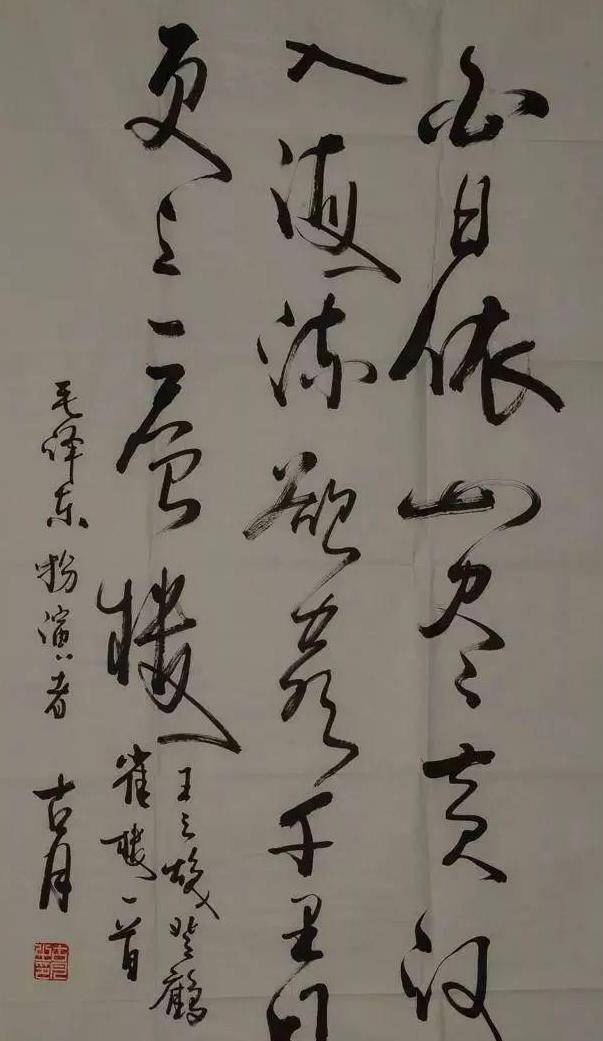 白日依山尽黄河
入海流欲穷千里目
更上一层楼
王之涣登鹳
雀楼一首
毛泽东扮演者 古月